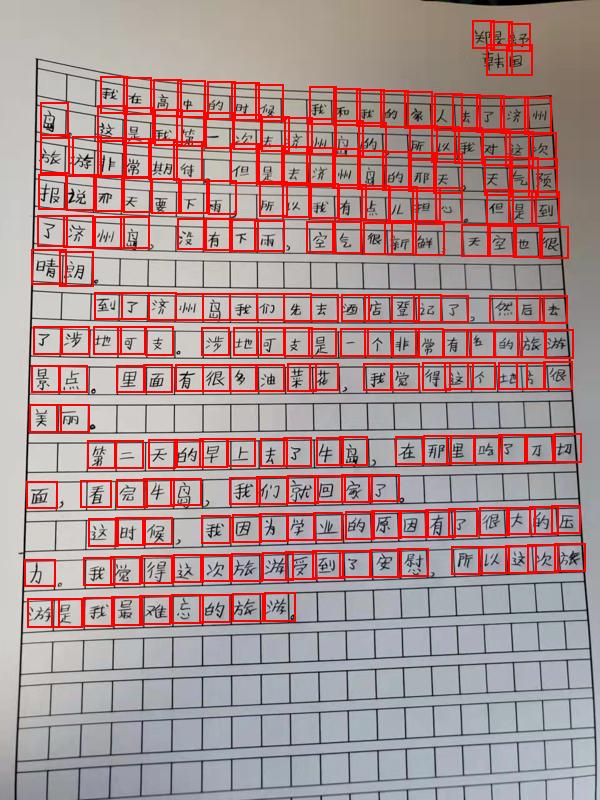 郑旻纾
韩国
我在高中的时候，我和我的家人去了济州
岛。这是我第一次去济州岛的，所以我对这次
旅游非常期待。但是去济州岛的那天，天气预
报说那天要下雨，所以我有点儿担心。但是到
了济州岛，没有下雨，空气很新鲜，天空也很
晴朗。
到了济州岛我们先去酒店登记了，然后去
了涉地可支。涉地可支是一个非常有名的旅游
景点。里面有很多油菜花，我觉得这个地方很
美丽。
第二天的早上去了牛岛，在那里吃了刀切
面，看完牛岛，我们就回家了。
这时候，我因为学业的原因有了很大的压
力。我觉得这次旅游受到了安慰，所以这次旅
游是我最难忘的旅游。